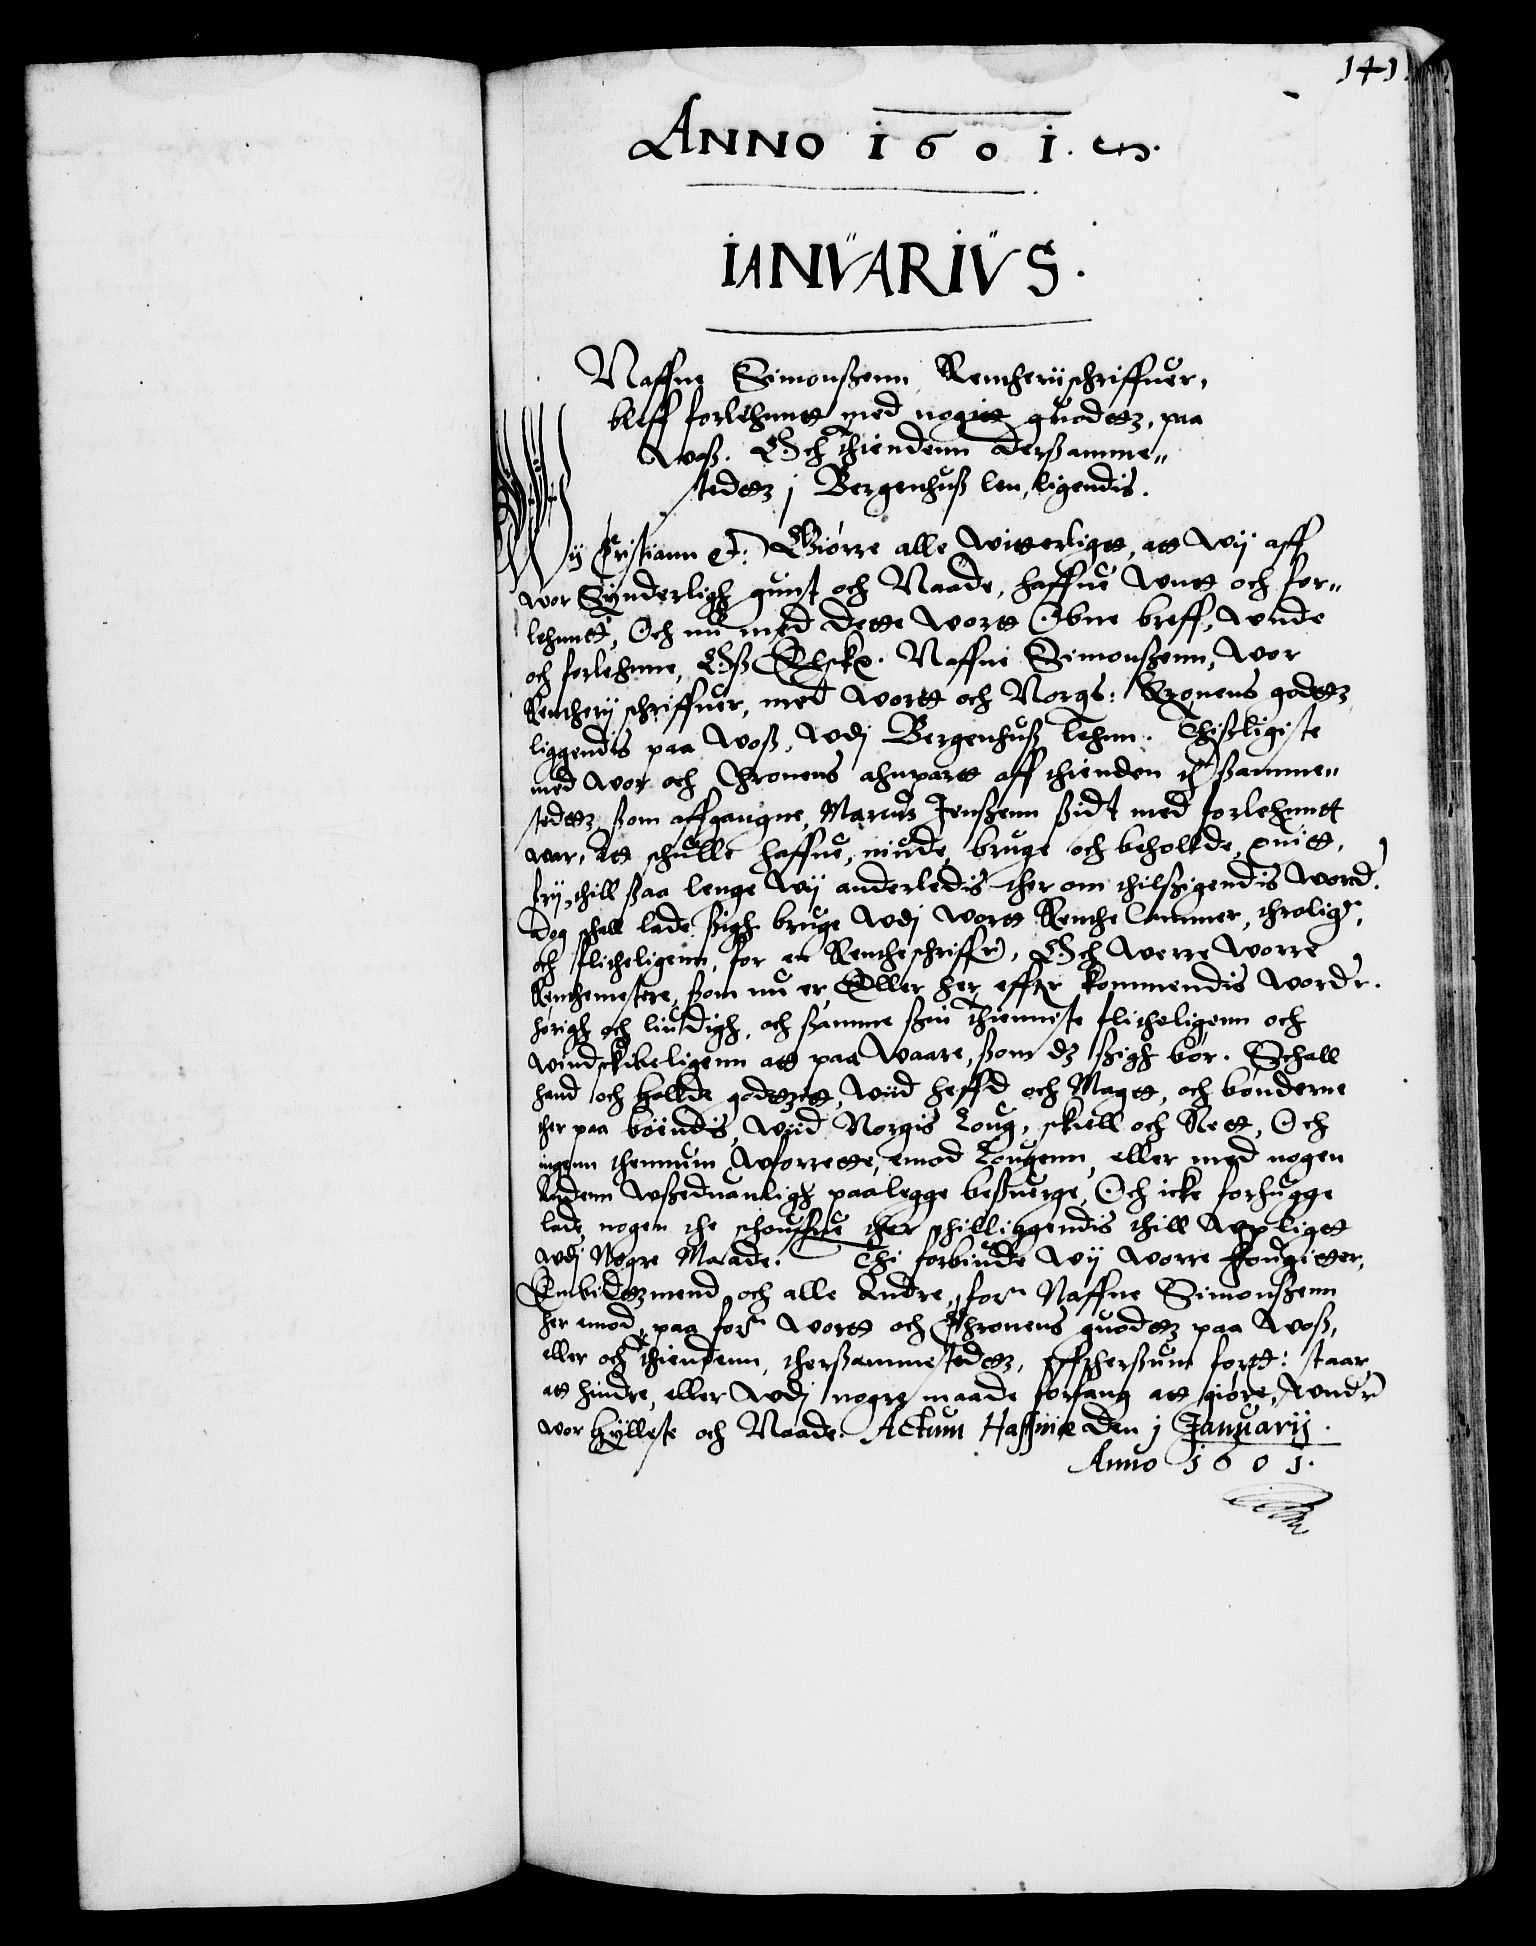 141
ANNO 1601.
IANVARIVS.
Naffne Simonßenn Rentherijschriffuer,
bleff forlehnntt med nogitt guodttz, paa
Woß. Och Thiendenn dersamme-
stedttz j Bergenhuß len, ligendis.
Wij Cristiann etc: Giørre alle witterligtt, att wij aff
wor Sÿnderligh gunst och Naade, haffue wntt och for-
lehnntt, Och nu med dette wortt Obne breff, wnde
och forlehnne, Oß Elske. Naffne Simonßenn, wor
Rentherij schriffuer, med wortt och Norgs: Cronens godttz
liggendis paa Woß, wdj Bergenhuß Lehnn. Thißligiste
med wor och Chronens ahnpartt aff thienden ther samme-
stedttz som affgangne, Marcus Jenßenn ßidt med forlehnntt
war, Att schulle haffue, niude, bruge och beholde, quitt,
frij, thill ßaa lenge wij anderledis ther om thilßigendis word.
dog schall lade ßigh bruge wdj wortt Renthe Cammer, throlig,
och flitheligenn, for en Rentheschriffr, Och werre worre
Renthemestere, som nu er Eller her effter kommendis worder.
hørigh och liudigh, och ßamme ßin Thienniste flitheligenn och
windskibeligenn att paa waare, som dz ßigh bør. Schall
hand och Hollde godttzitt, wiid heffd och Magtt, och bønderne
ther paa boindis, wiid Norgis Loug, skiell och Rett, Och
ingenn thennum wforrette, emod Lougenn, eller med nogen
Andenn wßeduanligh paalegge beßuerge, Och icke forhugge
lade nogen the schouffue ther thilliggendis thill wpligtt
wdj Nogre Maade. Thi forbiude wij worre Fougitter,
Embidttzmend och alle Andre, forne Naffne Simonßenn
her emod, paa forne wortt och Chronens guodttz paa Woß,
eller och Thiendenn, thersammestedttz, effthersum fortt: staar
att hindre, eller wdj nogre maade forfang att giøre, wnder
wor Hÿlleste och Naade. Actum Haffniæ den j Januarij.
Anno 1601.